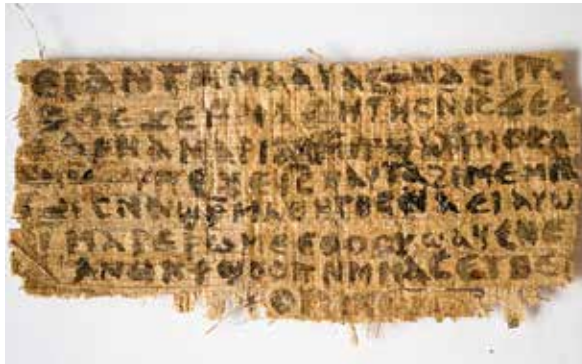 ⲉⲓ ⲁⲛ ⲧⲁⲙⲁⲁⲩ ⲁⲥϯ ⲛⲁⲉⲓ ⲡ
ϫⲉ ⲙⲙⲁⲑⲏⲧⲏⲥ ⲛⲓⲥ ϫⲉ ⲥ
ⲁⲣⲛⲁ ⲙⲁⲣⲓⲁⲙ ⲙⲡϣⲁ ⲙⲙⲟⲥ ⲁ
ⲡⲉϫⲉ ⲓⲥ ⲛⲁⲩ ⲧⲁϩⲓⲙⲉ ⲙⲛ
ⲥⲛⲁϣⲣⲙⲁⲑⲏⲧⲏⲥ ⲛⲁⲉⲓ ⲁⲩⲱ
ⲓ ⲙⲁⲣⲉⲣⲱⲙⲉ ⲉⲑⲟⲟⲩ ϣⲁϥⲉ ⲛⲉ
ⲁⲛⲟⲕ ϯϣⲟⲟⲡ ⲛⲙⲙⲁⲥ ⲉⲧⲃⲉ